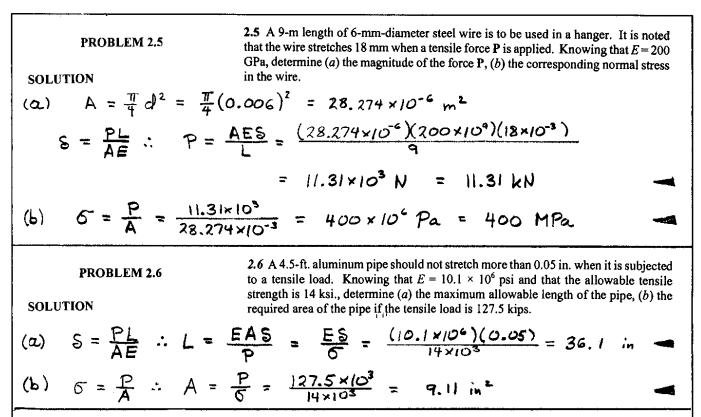 PROBLEM 2.5
2.5 A 9-m length of 6-mm-diameter steel wire is to be used in a hanger. It is noted
that the wire stretches 18 mm when a tensile force P is applied. Knowing that E = 200
GPa, determine (a) the magnitude of the force P, (b) the corresponding normal stress
in the wire.
SOLUTION
(a) A = π/4 d² = π/4 (0.006)² = 28.274 × 10⁻⁶ m²
δ = PL/AE ∴ P = AEδ/L = (28.274×10⁻⁶)(200×10⁹)(18×10⁻³)/9
= 11.31×10³ N = 11.31 kN
(b) σ = P/A = 11.31×10³/28.274×10⁻³ = 400 × 10⁶ Pa = 400 MPa
PROBLEM 2.6
2.6 A 4.5-ft. aluminum pipe should not stretch more than 0.05 in. when it is subjected
to a tensile load. Knowing that E = 10.1 × 10⁶ psi and that the allowable tensile
strength is 14 ksi., determine (a) the maximum allowable length of the pipe, (b) the
required area of the pipe if the tensile load is 127.5 kips.
SOLUTION
(a) δ = PL/AE ∴ L = EAδ/P = Eδ/σ = (10.1×10⁶)(0.05)/14×10³ = 36.1 in
(b) σ = P/A ∴ A = P/σ = 127.5×10³/14×10³ = 9.11 in²